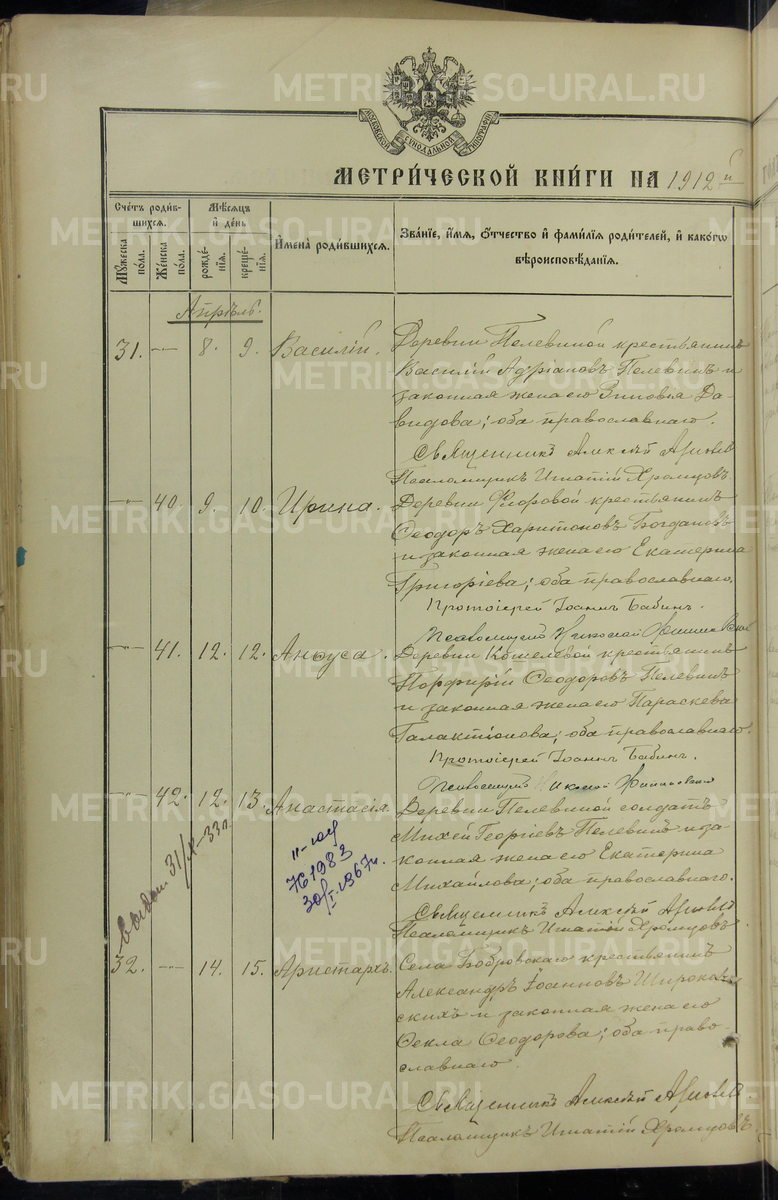 МОСКОВСКОЙ СѴНОДАЛЬНОЙ ТИПОГРАФІИ
МЕТРИ́ЧЕСКОЙ КНИ́ГИ НА 1912 й
Сче́тъ роди́в-
шихся.
Мѣ́сяцъ
и҆ де́нь
Мꙋ́жеска по́ла.
Же́нска по́ла.
рожде́-
нїя.
креще́-
нїя.
И҆мена̀ роди́вшихся.
Зва́нїе, и҆́мя, ѻ҆́тчество и҆ фами́лїя роди́телей, и҆ како́гѡ
вѣроисповѣ́данїя.
Апрѣль.
31. — 8. 9. Василій.
Деревни Пелевиной крестьянинъ
Василій Адріановъ Пелевинъ и
законная жена его Зиновья Да-
видова; оба православнаго.
Священникъ Алексѣй
Псаломщикъ Игнатій Храмцовъ.
— 40. 9. 10. Ирина.
Деревни крестьянинъ
Ѳеодоръ Харитоновъ Богдановъ
и законная жена его Екатерина
Григоріева; оба православнаго.
Протоіерей Іоаннъ Бабинъ.
Псаломщикъ Николай
— 41. 12. 12. Анѳуса.
Деревни Кошелевой крестьянинъ
Порфирій Ѳеодоровъ Пелевинъ
и законная жена его Параскева
Галактіонова; оба православнаго.
Протоіерей Іоаннъ Бабинъ.
Псаломщикъ Николай
— 42. 12. 13. Анастасія.
Деревни Пелевиной солдатъ
Михей Георгіевъ Пелевинъ и за-
конная жена его Екатерина
Михайлова; оба православнаго.
Священникъ Алексѣй
Псаломщикъ Игнатій Храмцовъ.
выдан 31/X-33г.
II-юу
761983
30/I-1967г.
32. — 14. 15. Аристархъ.
Села Бобровскаго крестьянинъ
Александръ Іоанновъ Широков-
скихъ и законная жена его
Ѳекла Ѳеодорова; оба право-
славнаго.
Священникъ Алексѣй
Псаломщикъ Игнатій Храмцовъ.
METRIKI.GASO-URAL.RU